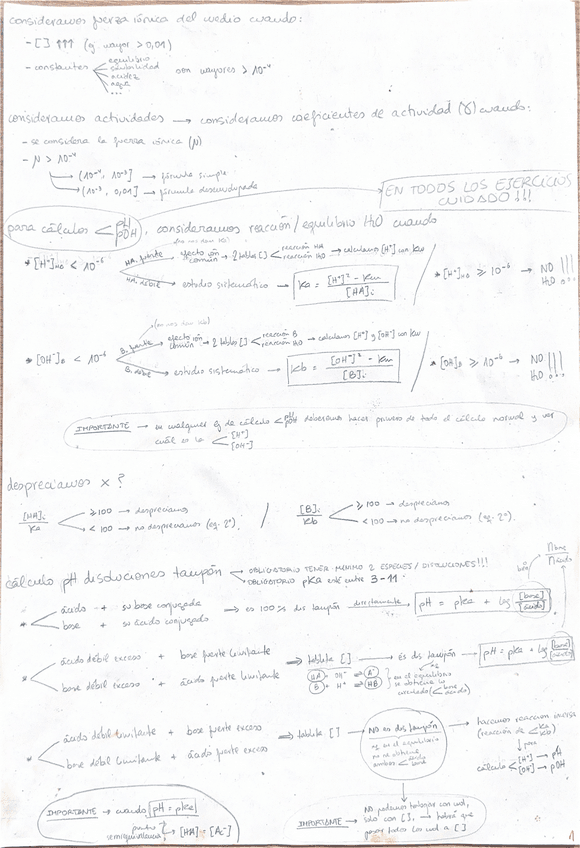 consideramos fuerza iónica del medio cuando:
- [ ] ↑↑↑ (ej. mayor > 0,01)
- constantes
equilibrio
solubilidad
acidez
son mayores > 10⁻⁴
...
consideramos actividades → consideramos coeficientes de actividad (γ) cuando:
- se considera la fuerza iónica (N)
- N > 10⁻⁴
(10⁻⁴, 10⁻³] → fórmula simple
(10⁻³, 0,01] → fórmula descendiguada
EN TODOS LOS EJERCICIOS
CUIDADO!!!
para cálculos < pH pOH, consideramos reacción/equilibrio H₂O cuando
* [H⁺]HA < 10⁻⁶
HA. fuerte
(no nos dan Ka)
efecto ión común → 2 tablas [ ] < reacción HA reacción H₂O → calculamos [H⁺] con Kw
HA. débil → estudio sistemático → Ka = [H⁺]² - Kw / [HA]i
/ * [H⁺]HA ≥ 10⁻⁶ → NO H₂O !!!
* [OH⁻]B < 10⁻⁶
B. fuerte
(no nos dan Kb)
efecto ión común → 2 tablas [ ] < reacción B reacción H₂O → calculamos [H⁺] y [OH⁻] con Kw
B. débil → estudio sistemático → Kb = [OH⁻]² - Kw / [B]i
/ * [OH]B ≥ 10⁻⁶ → NO H₂O !!!
IMPORTANTE → en cualquier ej de cálculo < pH pOH deberíamos hacer primero de todo el cálculo normal y ver
cuál es la < [H⁺] [OH⁻]
despreciamos x?
[HA]i / Ka < ≥100 → despreciamos
<100 → no despreciamos (eq. 2º).
/ [B]i / Kb < ≥100 → despreciamos
<100 → no despreciamos (eq. 2º).
cálculo pH disoluciones tampón
OBLIGATORIO TENER MINIMO 2 ESPECIES/DISOLUCIONES!!!
OBLIGATORIO pKa esté entre 3-11
n base / n ácido
* ácido + su base conjugada
base + su ácido conjugado
→ es 100% dis tampón directamente → pH = pKa + log [base] / [ácido]
* ácido débil exceso + base fuerte limitante
base débil exceso + ácido fuerte limitante
⇒ tablita [ ] → és dis tampón → pH = pKa + log [base] / [ácido]
HA + OH⁻ ⇌ A⁻
B + H⁺ ⇌ HB
en el equilibrio
se obtiene lo
calculado < base ácido
* ácido débil limitante + base fuerte exceso
base débil limitante + ácido fuerte exceso
⇒ tablita [ ] → NO es dis tampón
en el equilibrio
no se obtiene
ambos < ácido base
→ hacemos reacción inversa
(reacción de < Ka Kb)
para
cálculo < [H⁺] → pH [OH⁻] → pOH
IMPORTANTE → cuando pH = pKa
punto semiequivalencia → [HA] = [Ac⁻]
IMPORTANTE → NO podemos trabajar con mol,
solo con [ ], → habrá que
pasar todos los mol a [ ]
1